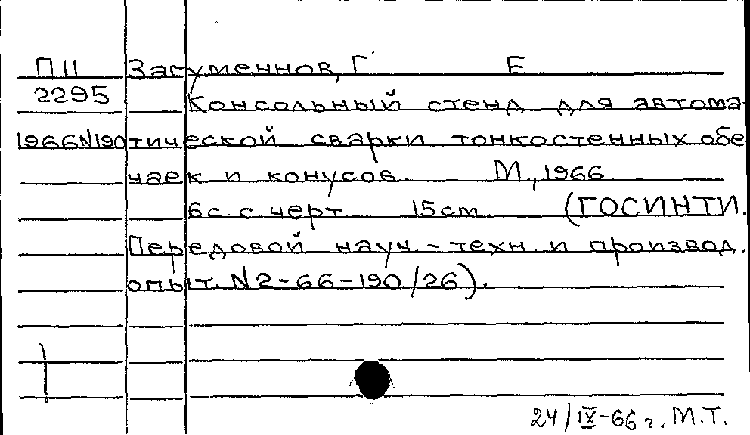 П11 Загуменнов, Г Е
2295 Консольный стенд для автома-
1966N190 тической сварки тонкостенных обе
чаек и конусов. М., 1966
6с. с черт. 15см. (ГОСИНТИ.
Передовой науч.-техн. и производ.
опыт. N2-66-190/26).
24/IV-66 г. М.Т.